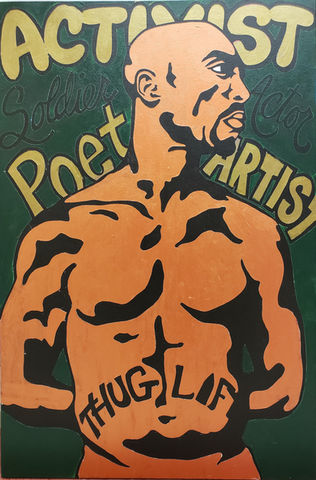 ACTIVIST
Soldier
Actor
Poet
ARTIST
THUG LIF